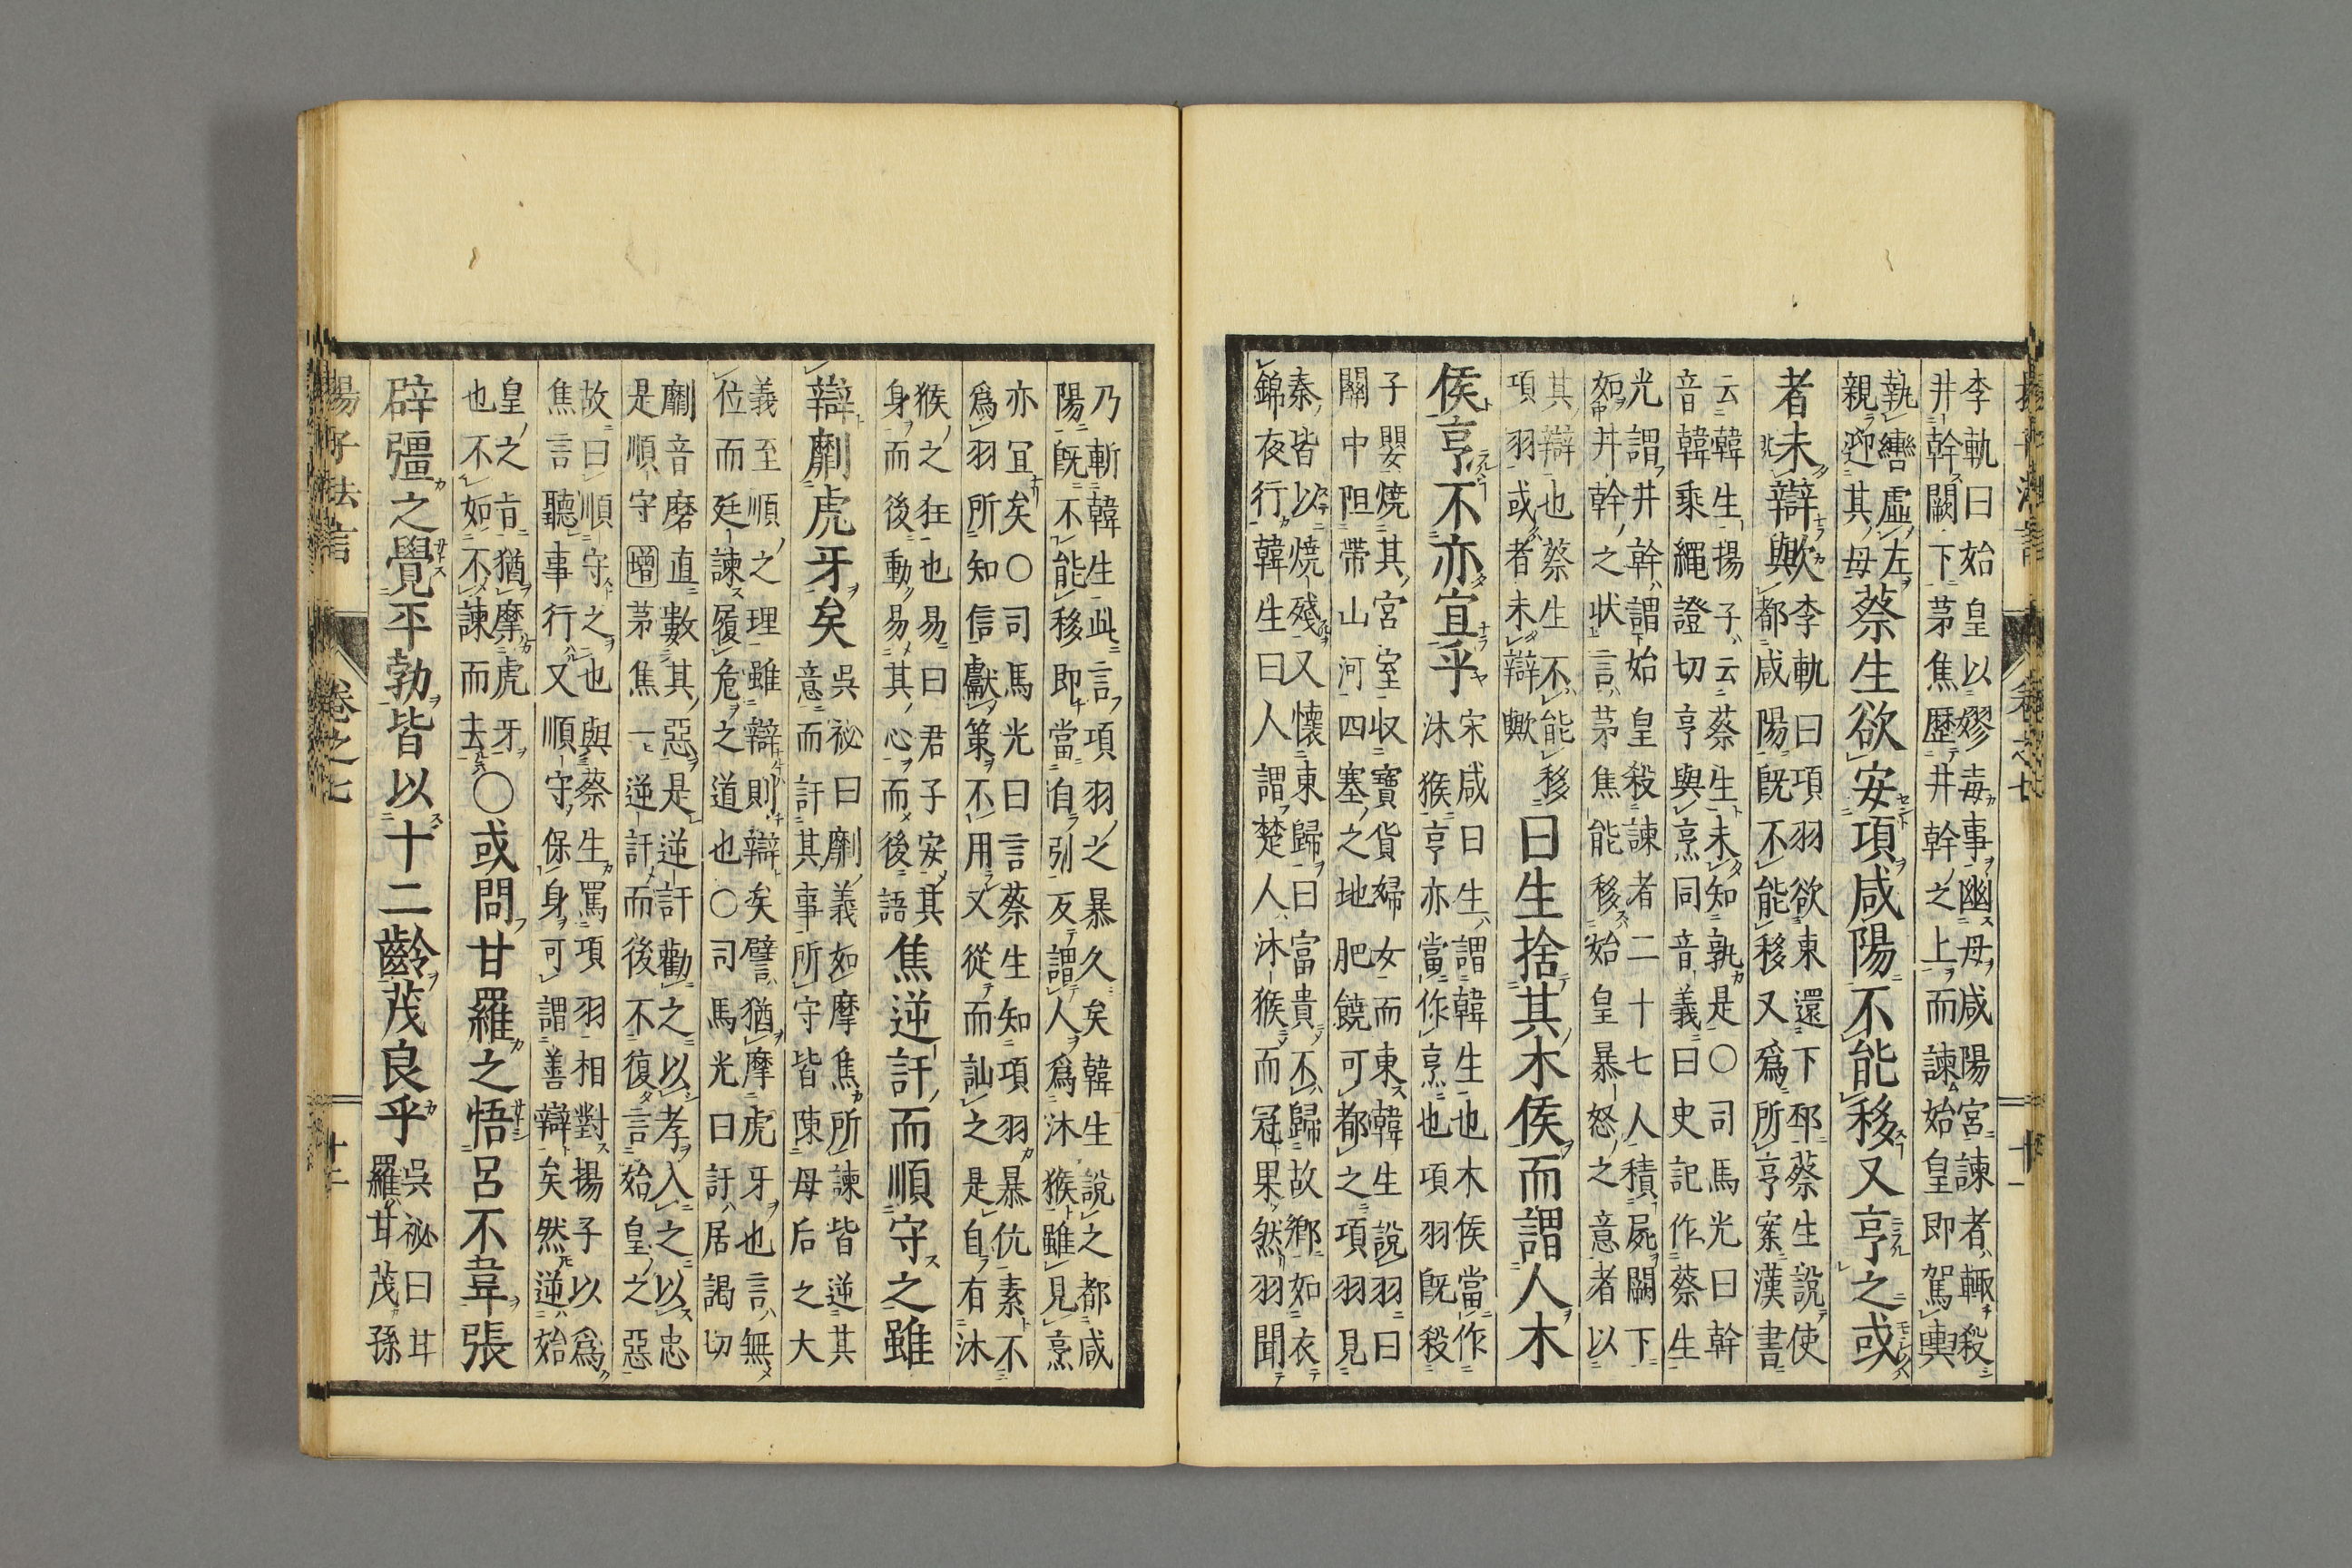 李軌曰始皇以嫪毐事幽母咸陽宮諫者輙殺
井幹闕下茅焦歷井幹之上而諫始皇即駕輿
執轡虛左
親迎其母
蔡生欲安項咸陽不能移又亨之或
者未辯歟
李軌曰項羽欲東還下邳蔡生說使
都咸陽既不能移又爲所亨案漢書
云韓生揚子云蔡生未知孰是○司馬光曰幹
音韓乘繩證切亨與烹同音義曰史記作蔡生
光謂井幹謂始皇殺諫者二十七人積屍闕下
如井幹之状言茅焦能移始皇暴怒之意者以
其辯也蔡生不能移
項羽或者未辯歟
曰生捨其木侯而謂人木
侯亨不亦宜乎
宋咸曰生謂韓生也木侯當作
沐猴亨亦當作烹也項羽既殺
子嬰燒其宮室収寶貨婦女而東韓生說羽曰
關中阻帶山河四塞之地肥饒可都之項羽見
秦皆以燒殘又懷東歸曰富貴不歸故鄉如衣
錦夜行韓生曰人謂楚人沐猴而冠果然羽聞
乃斬韓生此言項羽之暴久矣韓生說之都咸
陽既不能移即當自引反謂人爲沐猴雖見烹
亦宜矣○司馬光曰言蔡生知項羽暴伉素不
爲羽所知信獻策不用又從而訕之是自有沐
猴之狂也易曰君子安其
身而後動易其心而後語
焦逆訐而順守之雖
辯劘虎牙矣
吳祕曰劘義如摩焦所諫皆逆其
意而訐其事所守皆陳母后之大
義至順之理雖辯則辯矣譬猶摩虎牙也言無
位而廷諫履危之道也○司馬光曰訐居謁切
劘音磨直數其惡是逆訐勸之以孝入之以忠
是順守增茅焦一逆訐而後不復言始皇之惡
故曰順守之也與蔡生罵項羽相對揚子以爲
焦言聽事行又順守保身可謂善辯矣然逆始
皇之旨猶摩虎牙
也不如不諫而去
○或問甘羅之悟呂不韋張
辟彊之覺平勃皆以十二齡茂良乎
吳祕曰甘
羅甘茂孫
揚子法言 卷之七 十二